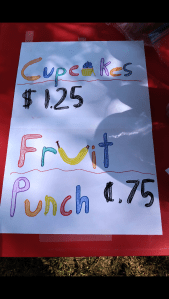 Cupcakes
$1.25
Fruit
Punch ¢.75